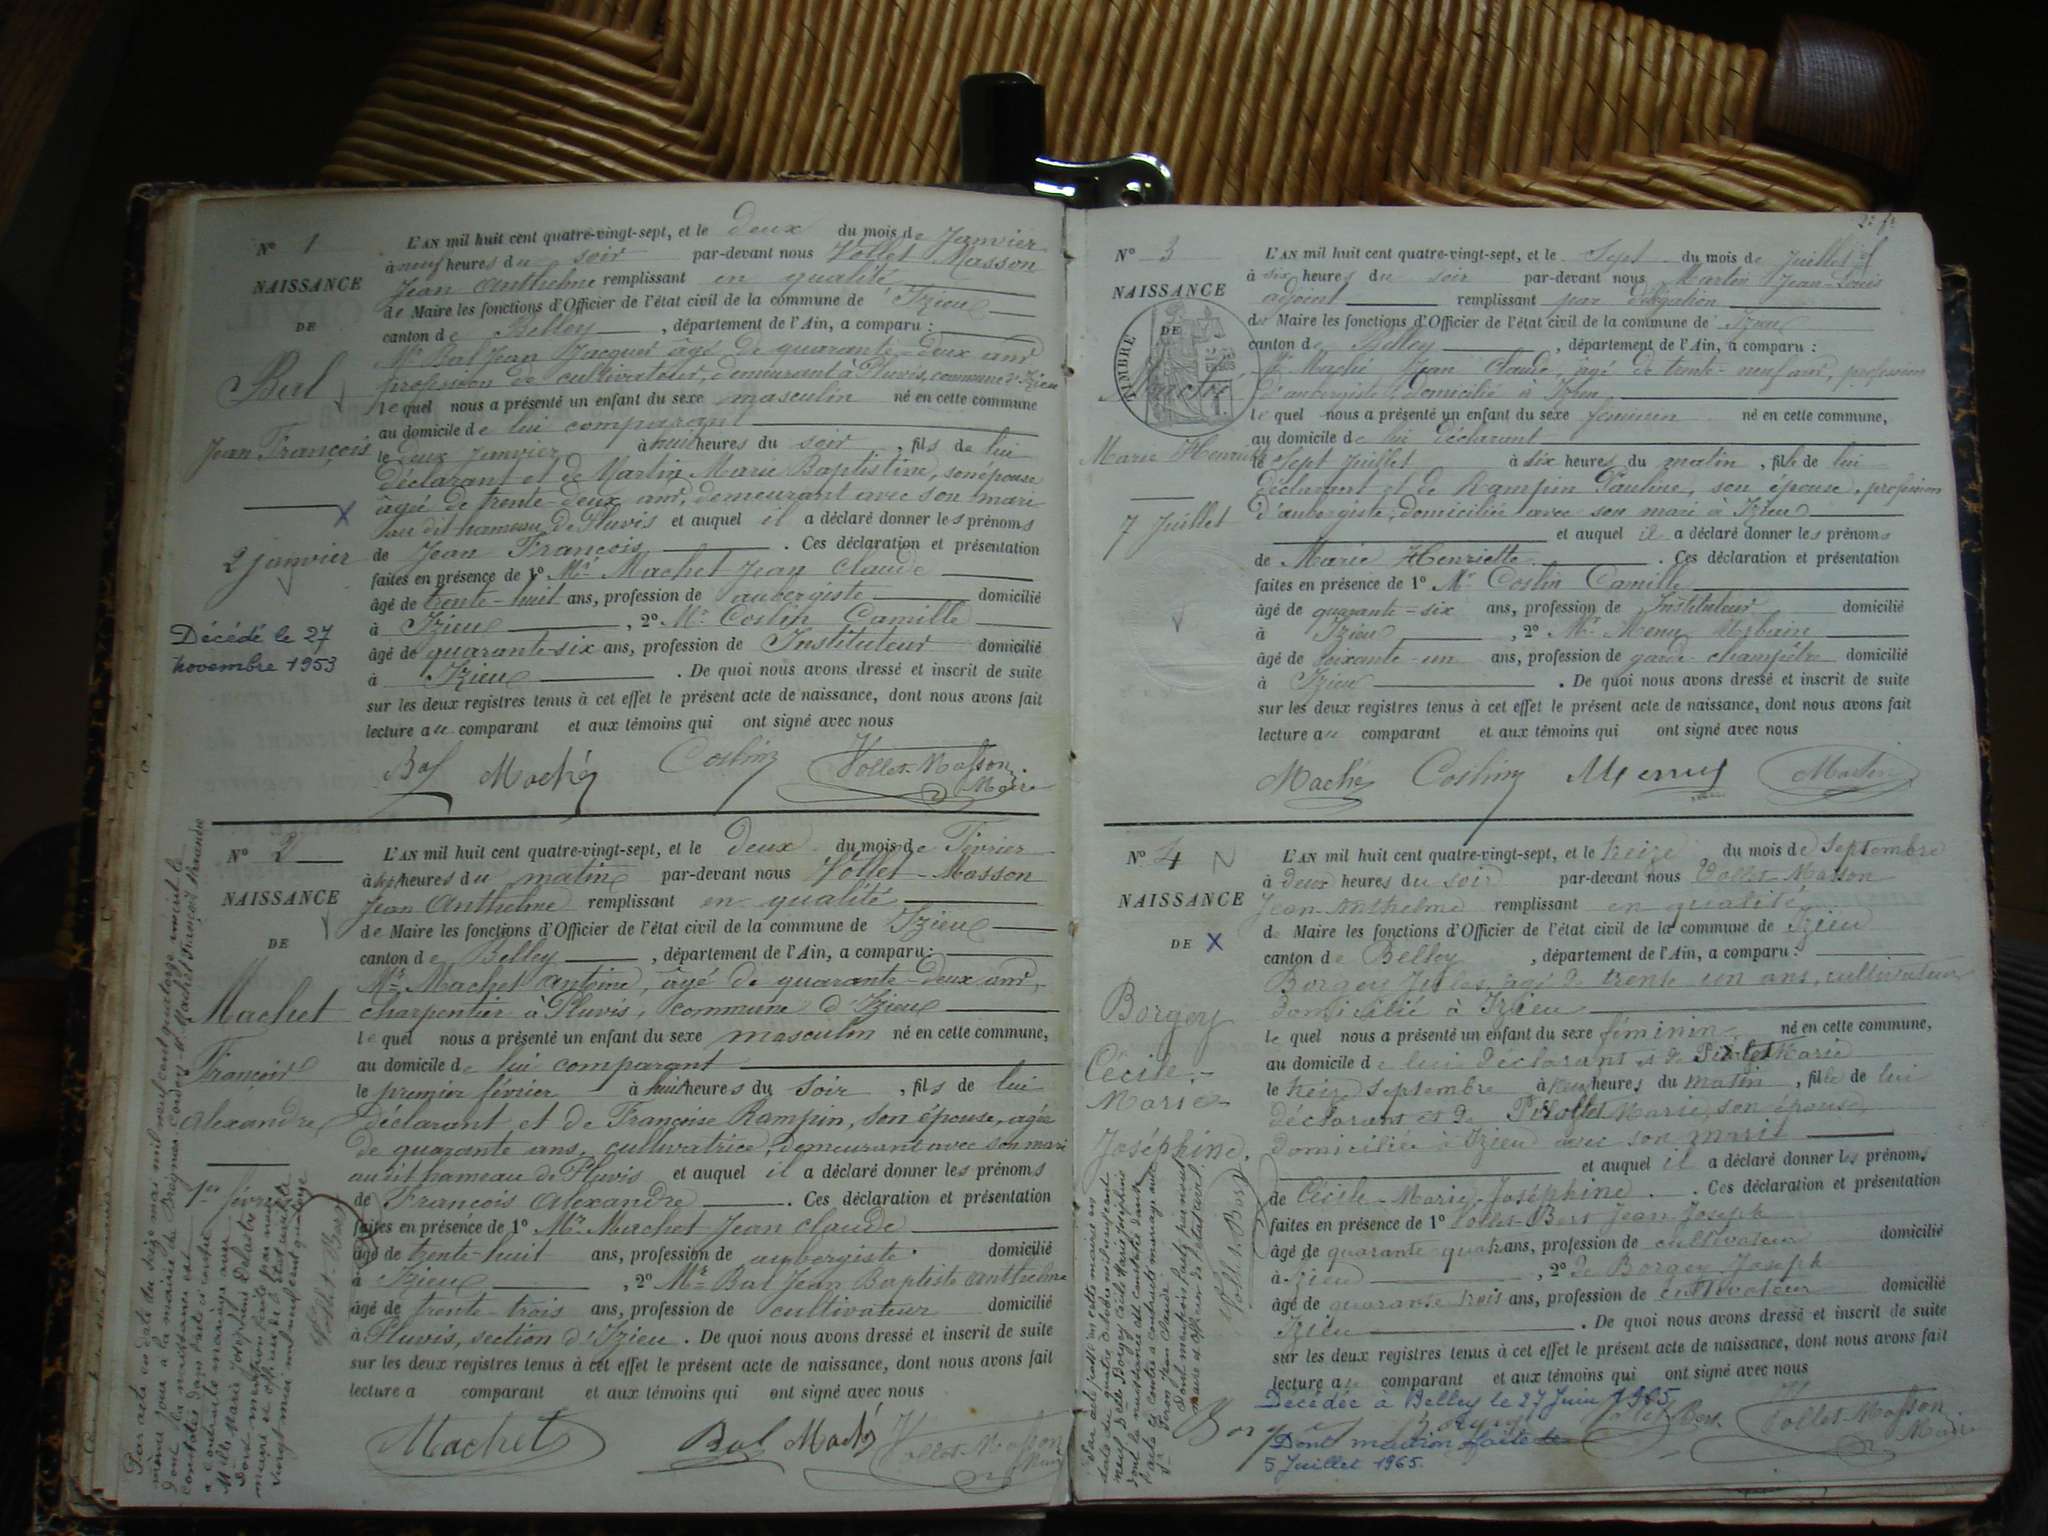 N° 1
NAISSANCE
DE
Bal
Jean François
2 janvier
Décédé le 27
novembre 1953
L'AN mil huit cent quatre-vingt-sept, et le deux du mois de Janvier
à neuf heures du soir par-devant nous Vollet-Masson
Jean Anthelme remplissant en qualité
de Maire les fonctions d'Officier de l'état civil de la commune de Izieu
canton de Belley, département de l'Ain, a comparu :
Mr Bal Jean Jacques âgé de quarante-deux ans
profession de cultivateur, demeurant à Pluvis, commune d'Izieu
lequel nous a présenté un enfant du sexe masculin né en cette commune
au domicile de lui comparant
le deux janvier à huit heures du soir, fils de lui
déclarant et de Martin Marie Baptistine, son épouse
âgée de trente-deux ans, demeurant avec son mari
au dit hameau de Pluvis et auquel il a déclaré donner les prénoms
de Jean François. Ces déclaration et présentation
faites en présence de 1° Mr Machet Jean Claude
âgé de trente-huit ans, profession de aubergiste domicilié
à Izieu, 2° Mr Costin Camille
âgé de quarante-six ans, profession de Instituteur domicilié
à Izieu. De quoi nous avons dressé et inscrit de suite
sur les deux registres tenus à cet effet le présent acte de naissance, dont nous avons fait
lecture au comparant et aux témoins qui ont signé avec nous
Bal Maché Costin Vollet-Masson
Maire
N° 2
NAISSANCE
DE
Machet
François
Alexandre
1er février
L'AN mil huit cent quatre-vingt-sept, et le deux du mois de Février
à heures du matin par-devant nous Vollet-Masson
Jean Anthelme remplissant en qualité
de Maire les fonctions d'Officier de l'état civil de la commune de Izieu
canton de Belley, département de l'Ain, a comparu :
Mr Machet Antoine, âgé de quarante-deux ans,
charpentier à Pluvis, commune d'Izieu
lequel nous a présenté un enfant du sexe masculin né en cette commune,
au domicile de lui comparant
le premier février à huit heures du soir, fils de lui
déclarant et de Françoise Rampin, son épouse, âgée
de quarante ans, cultivatrice, demeurant avec son mari
au dit hameau de Pluvis et auquel il a déclaré donner les prénoms
de François Alexandre. Ces déclaration et présentation
faites en présence de 1° Mr Machet Jean Claude
âgé de trente-huit ans, profession de aubergiste domicilié
à Izieu, 2° Mr Bal Jean Baptiste Anthelme
âgé de trente-trois ans, profession de cultivateur domicilié
à Pluvis, section d'Izieu. De quoi nous avons dressé et inscrit de suite
sur les deux registres tenus à cet effet le présent acte de naissance, dont nous avons fait
lecture a comparant et aux témoins qui ont signé avec nous
Machet Bal Maché Vollet-Masson
Par acte en date du seize mai mil neuf cent quatorze inscrit le
même jour à la mairie de
dont la naissance est
constatée dans l'acte ci-contre
a contracté mariage avec
Melle Marie Joséphine
N° 3
NAISSANCE
DE
TIMBRE
Marie Henriette
7 Juillet
L'AN mil huit cent quatre-vingt-sept, et le Sept du mois de Juillet
à six heures du soir par-devant nous Martin Jean-Louis
adjoint remplissant par délégation
de Maire les fonctions d'Officier de l'état civil de la commune de Izieu
canton de Belley, département de l'Ain, a comparu :
Mr Maché Jean Claude, âgé de trente-neuf ans, profession
d'aubergiste domicilié à Izieu
lequel nous a présenté un enfant du sexe féminin né en cette commune,
au domicile de lui déclarant
le Sept Juillet à six heures du matin, fille de lui
déclarant et de Rampin Pauline, son épouse, profession
d'aubergiste, domiciliée avec son mari à Izieu
et auquel il a déclaré donner les prénoms
de Marie Henriette. Ces déclaration et présentation
faites en présence de 1° Mr Costin Camille
âgé de quarante-six ans, profession de Instituteur domicilié
à Izieu, 2° Mr Menu Urbain
âgé de soixante-un ans, profession de garde-champêtre domicilié
à Izieu. De quoi nous avons dressé et inscrit de suite
sur les deux registres tenus à cet effet le présent acte de naissance, dont nous avons fait
lecture au comparant et aux témoins qui ont signé avec nous
Maché Costin Martin
N° 4
NAISSANCE
DE
Borgey
Cécile-
Marie-
Joséphine
L'AN mil huit cent quatre-vingt-sept, et le treize du mois de Septembre
à deux heures du soir par-devant nous Vollet-Masson
Jean Anthelme remplissant en qualité
de Maire les fonctions d'Officier de l'état civil de la commune de Izieu
canton de Belley, département de l'Ain, a comparu :
Borgey Jules, âgé de trente un ans, cultivateur
domicilié à Izieu
lequel nous a présenté un enfant du sexe féminin né en cette commune,
au domicile de lui déclarant et de Marie
le treize septembre à heures du matin, fille de lui
déclarant et de Marie, son épouse
domiciliée à Izieu avec son mari
et auquel il a déclaré donner les prénoms
de Cécile-Marie-Joséphine. Ces déclaration et présentation
faites en présence de 1° Vollet-Bert Jean Joseph
âgé de quarante quatre ans, profession de cultivateur domicilié
à Izieu, 2° de Borgey Joseph
âgé de quarante trois ans, profession de cultivateur domicilié
Izieu. De quoi nous avons dressé et inscrit de suite
sur les deux registres tenus à cet effet le présent acte de naissance, dont nous avons fait
lecture au comparant et aux témoins qui ont signé avec nous
Décédée à Belley le 27 Juin 1965
Dont mention faite le
5 Juillet 1965.
Vollet-Masson
Maire